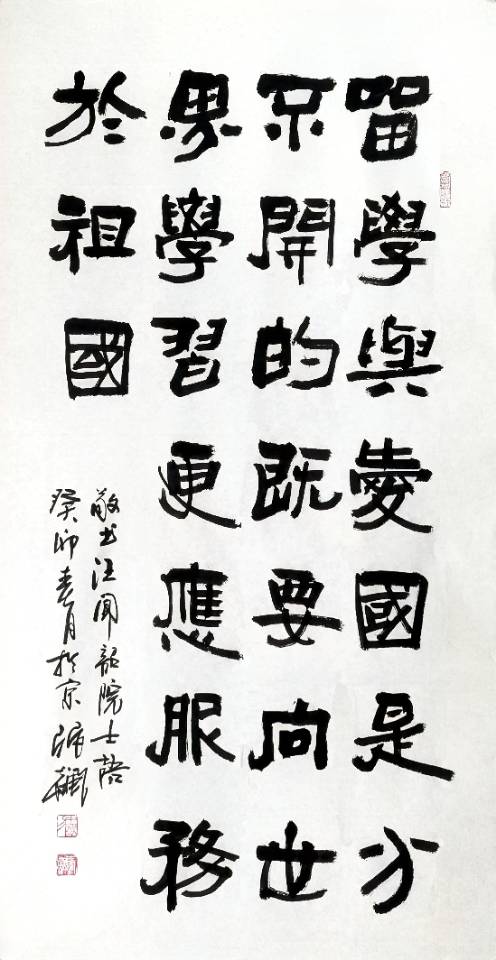 留學與愛國是分
不開的既要向世
界學習更應服務
於祖國
敬书汪闻韶院士语
癸卯春月於京